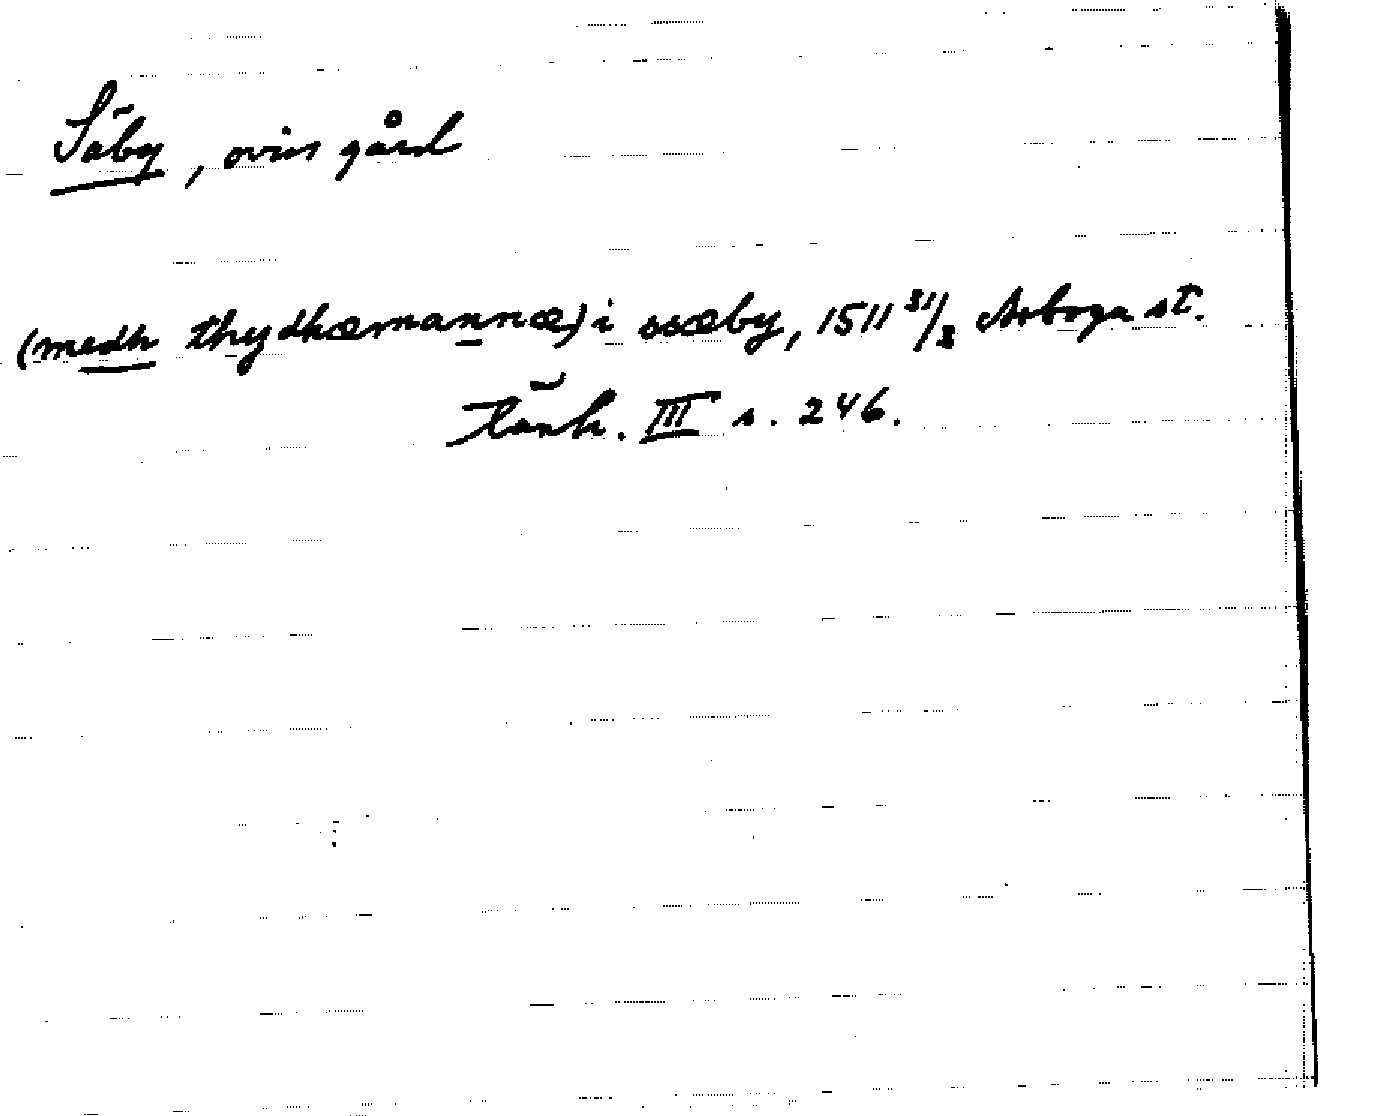 Säby, oviss gård
(medh thydhæmannæ) i ssæby, 1511 31/3 Arboga st.
tänk. III s. 246.